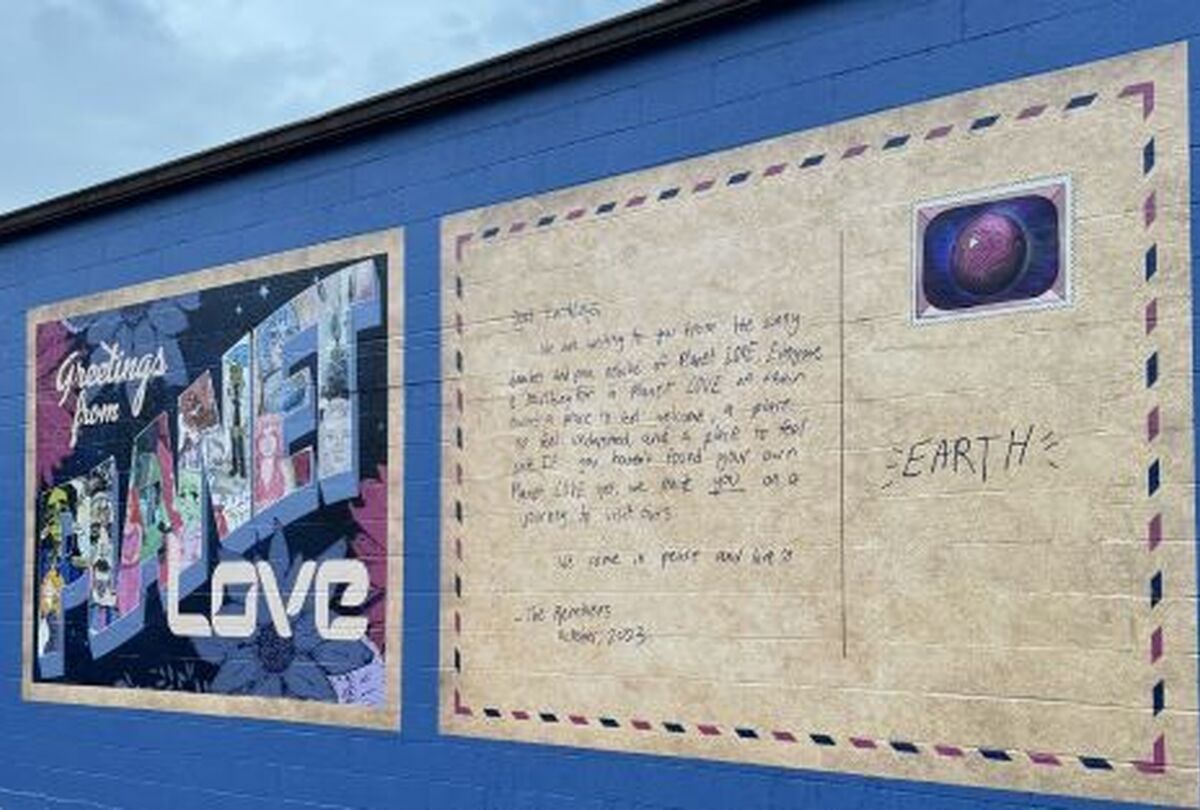 Greetings
from
PLANET
LOVE
Dear Earthlings,
We are writing to you from the sunny
of Planet LOVE. Everyone
is a Planet LOVE of their
own: a place to feel welcome, a place
to feel understood, and a place to feel
safe. If you haven't found your own
Planet LOVE yet, we invite you on a
journey to visit ours.
We come in peace and love is
EARTH
- The
October, 2023